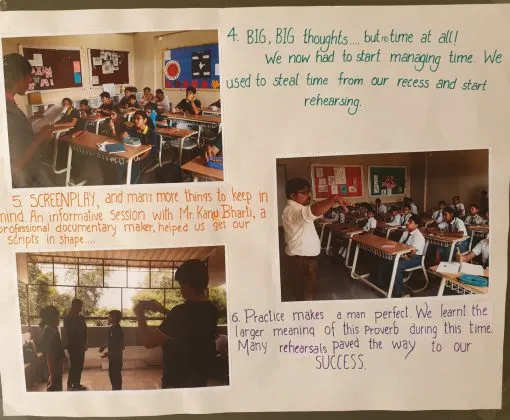 4. BIG, BIG thoughts.... but no time at all!
We now had to start managing time. We
used to steal time from our recess and start
rehearsing.
5. SCREENPLAY, and many more things to keep in
mind. An informative session with Mr. Kanu Bharti, a
professional documentary maker, helped us get our
scripts in shape....
6. Practice makes a man perfect. We learnt the
larger meaning of this Proverb during this time.
Many rehearsals paved the way to our
SUCCESS.